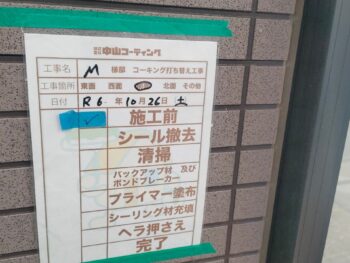 株式会社 中山コーティング
工事名 M 様邸 コーキング打ち替え工事
工事箇所 東面 西面 北面 その他
日付 R 6 年 10月 26日 土
施工前
シール撤去
清掃
バックアップ材 及び
ボンドブレーカー
プライマー塗布
シーリング材充填
ヘラ押さえ
完了